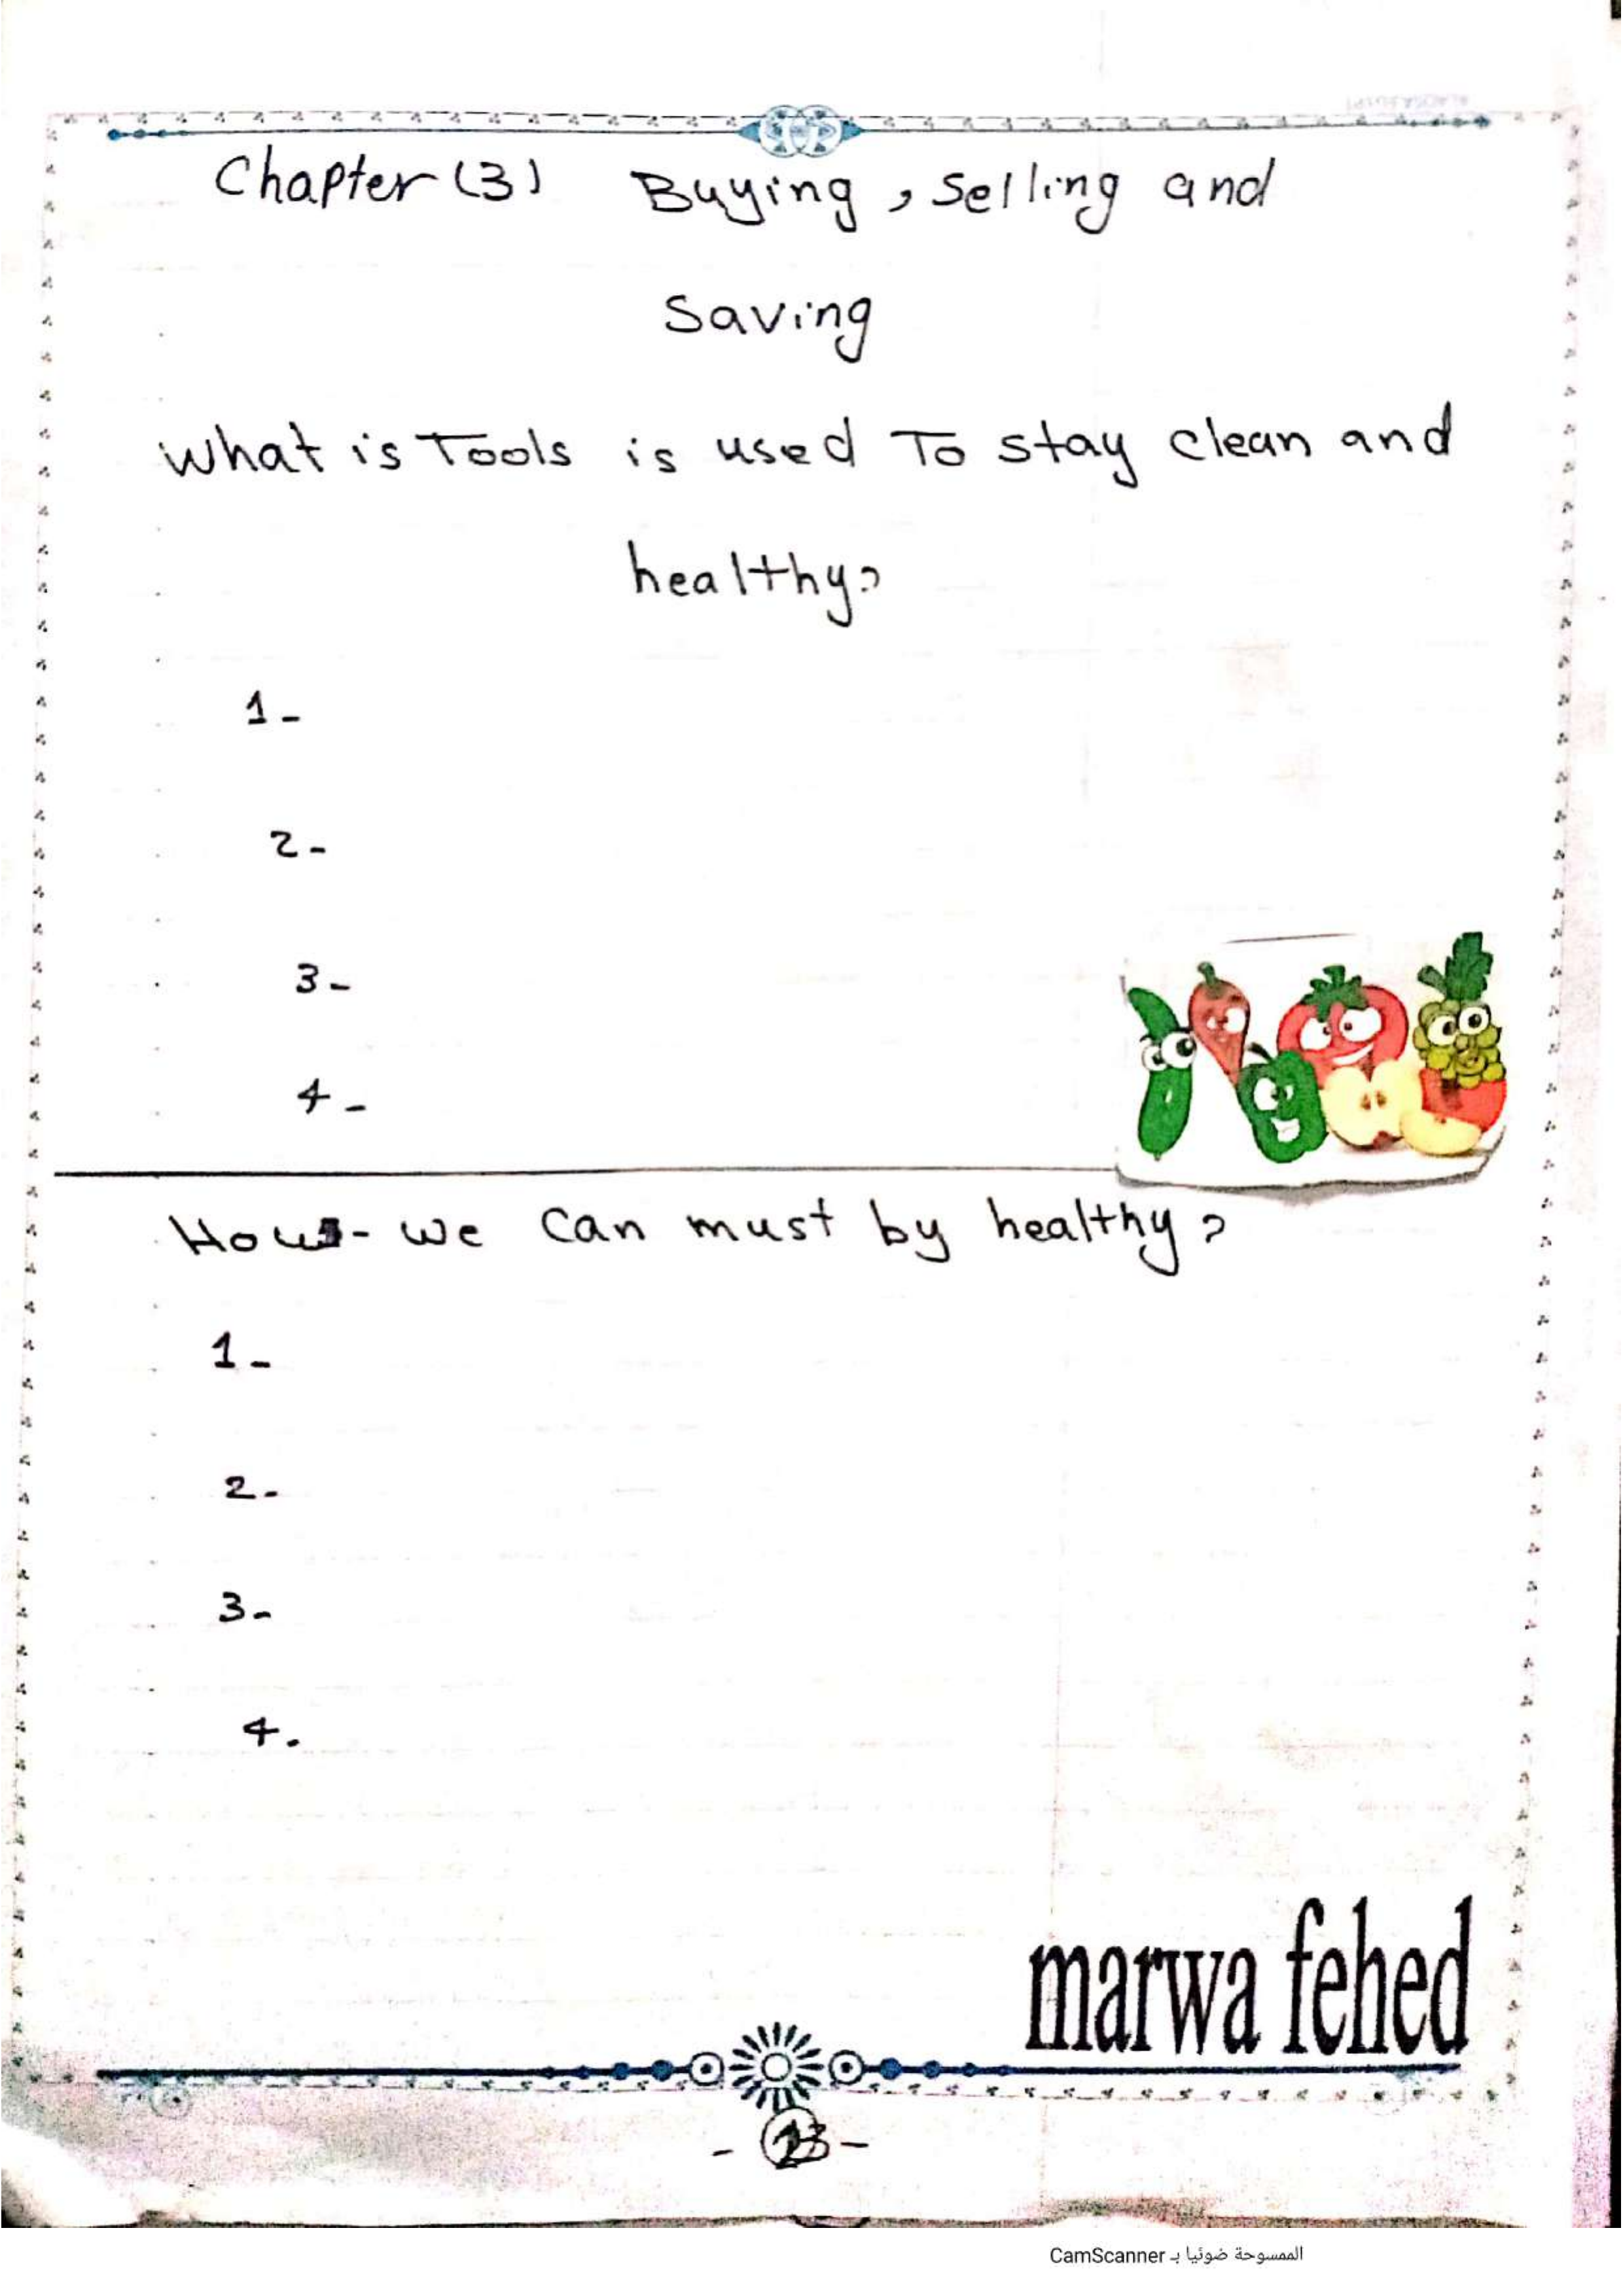 Chapter (3) Buying, Selling and
Saving
what is Tools is used To stay clean and
healthy?
1-
2-
3-
4-
How- we can must by healthy?
1-
2-
3-
4.
marwa fehed
CamScanner الممسوحة ضوئيا بـ